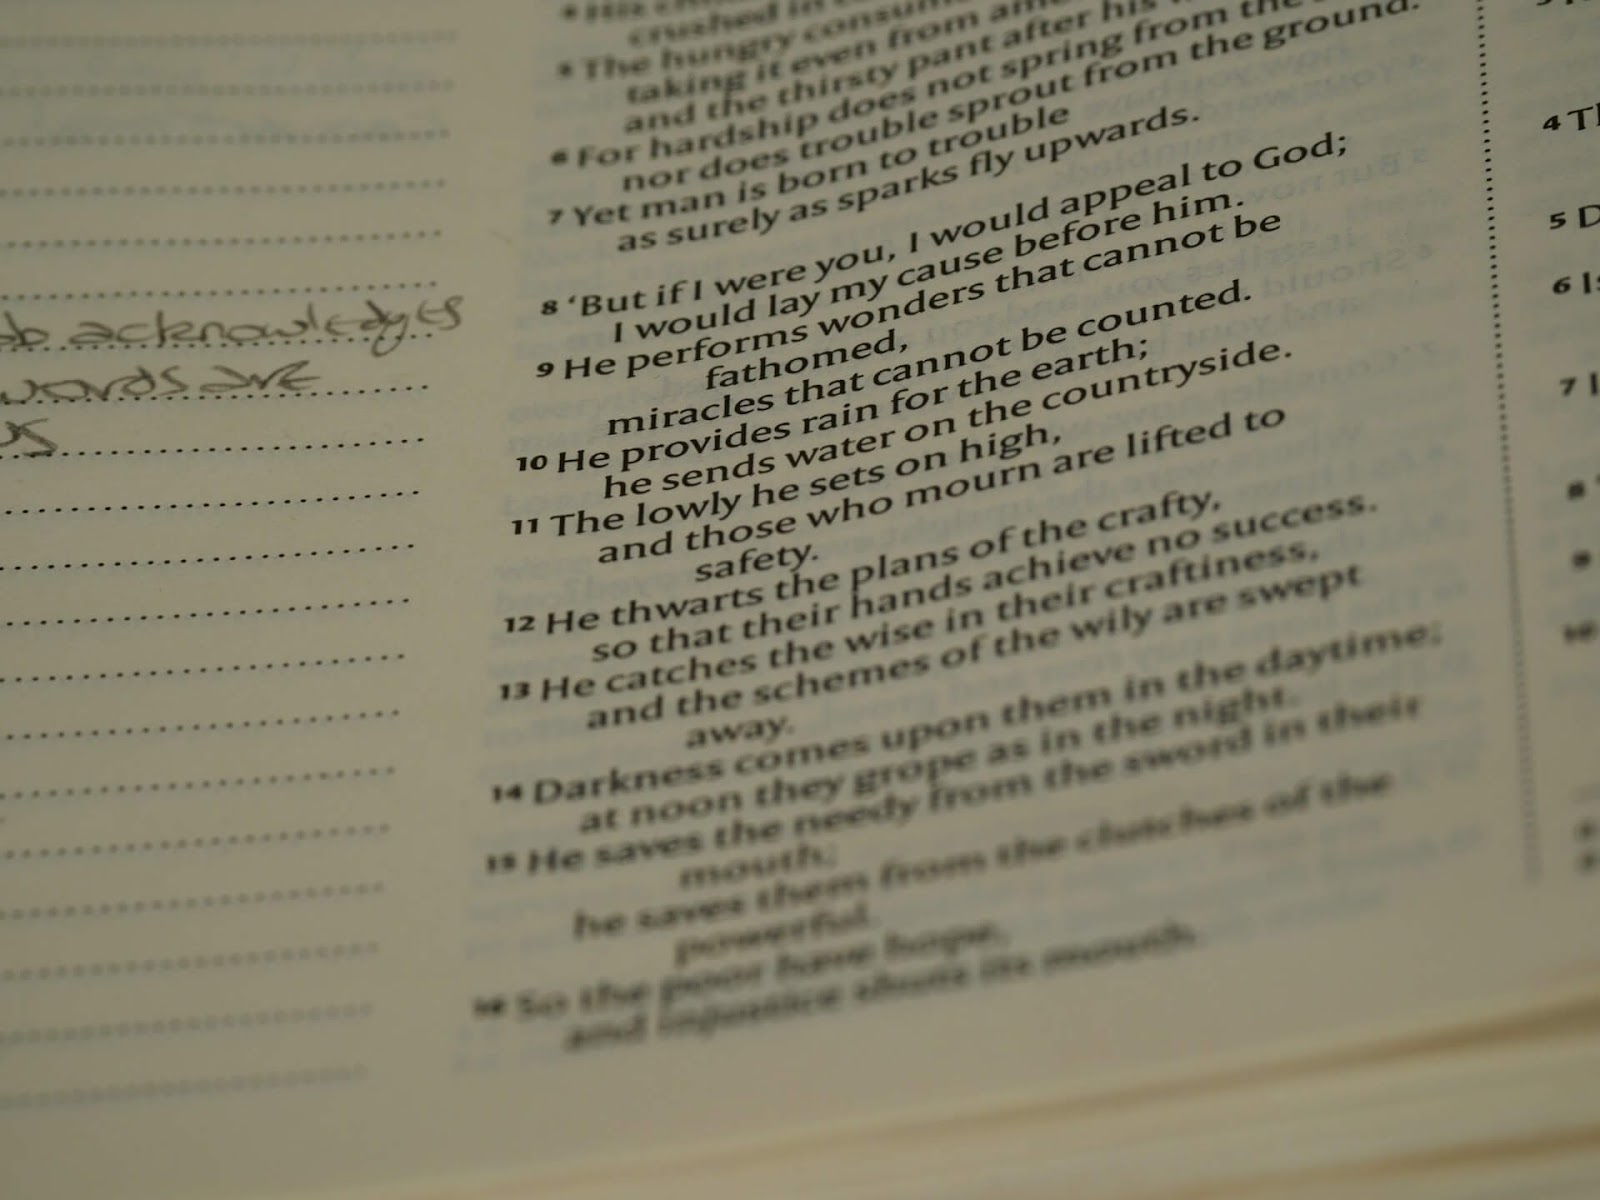 acknowledges
words are
crushed in
5 The hungry
taking it even from
and the thirsty pant after his
6 For hardship does not spring from the
nor does trouble sprout from the ground.
7 Yet man is born to trouble
as surely as sparks fly upwards.
8 ‘But if I were you, I would appeal to God;
I would lay my cause before him.
9 He performs wonders that cannot be
fathomed,
miracles that cannot be counted.
10 He provides rain for the earth;
he sends water on the countryside.
11 The lowly he sets on high,
and those who mourn are lifted to
safety.
12 He thwarts the plans of the crafty,
so that their hands achieve no success.
13 He catches the wise in their craftiness,
and the schemes of the wily are swept
away.
14 Darkness comes upon them in the daytime;
at noon they grope as in the night.
15 He saves the needy from the sword in their
mouth;
he saves them from the clutches of the
powerful.
16 So the poor have hope,
and injustice shuts its mouth.
4
5
6
7